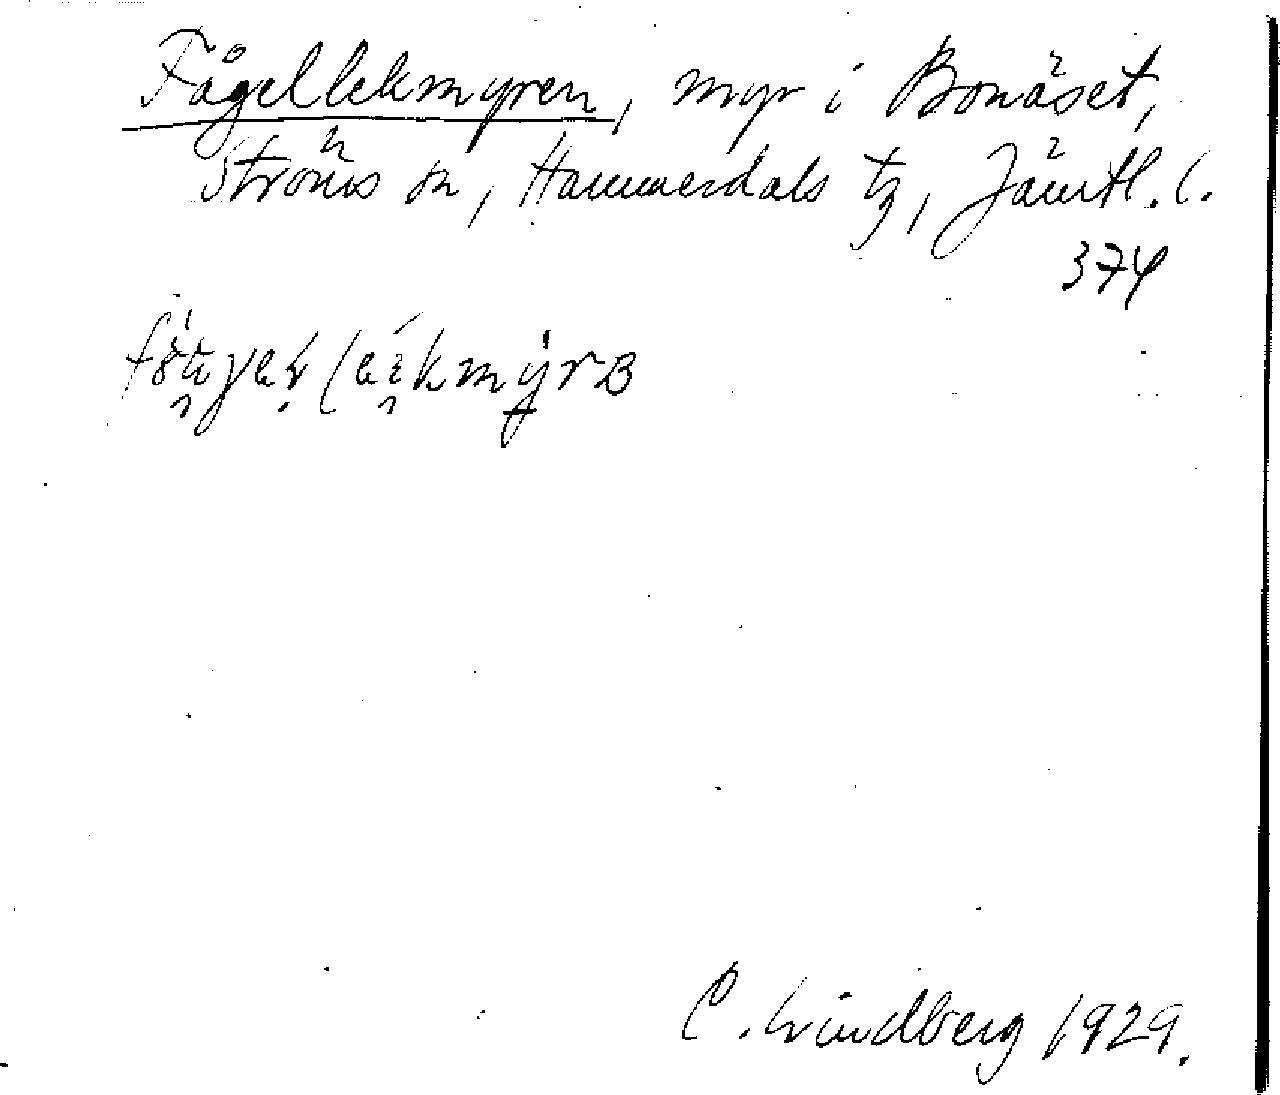 Fågellekmyren, myr i Bonäset,
Ströms sn, Hammerdals tg, Jämtl. l.
374
C. Lindberg 1929.